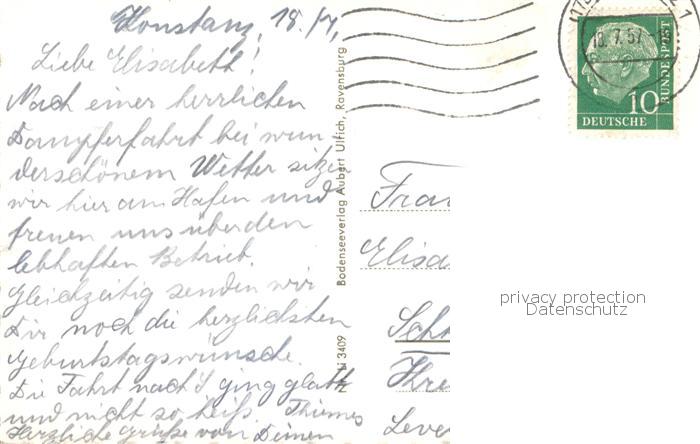 Konstanz, 18./7.
Liebe Elisabeth!
Nach einer herrlichen
Dampferfahrt bei wun-
derschönem Wetter sitzen
wir hier am Hafen und
freuen uns über den
lebhaften Betrieb.
Gleichzeitig senden wir
Dir noch die herzlichsten
Geburtstagswünsche.
Die Fahrt nach S ging glatt
und nicht so heiß.
Herzliche Grüße von Deinen
Bodenseeverlag Aubert Ulrich, Ravensburg
3409
18.7.57
10
DEUTSCHE
BUNDESPOST
Frau
Elisa
Sch
Leve
privacy protection
Datenschutz